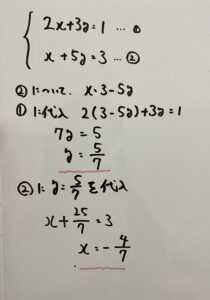 2x+3y=1 … ①
x+5y=3 … ②
②について x=3-5y
①に代入 2(3-5y)+3y=1
7y=5
y=5/7
②に y=5/7 を代入
x+25/7=3
x=-4/7